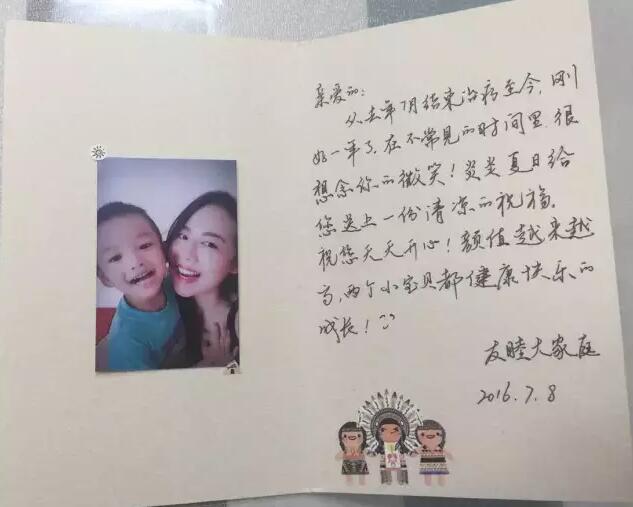 亲爱的：
从去年7月结束治疗至今，刚
好一年了，在不常见的时间里，很
想念你的微笑！炎炎夏日给
您送上一份清凉的祝福，
祝您天天开心！颜值越来越
高，两个小宝贝都健康快乐的
成长！
友睦大家庭
2016.7.8